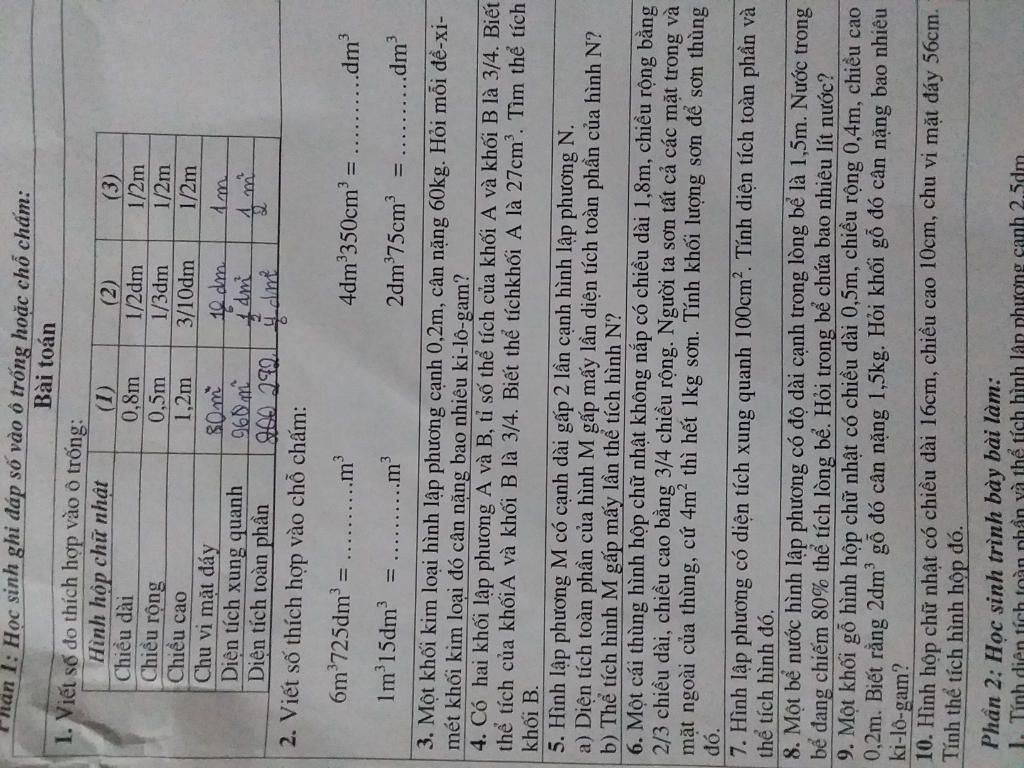 Phần 1: Học sinh ghi đáp số vào ô trống hoặc chỗ chấm:
Bài toán
1. Viết số đo thích hợp vào ô trống:
Hình hộp chữ nhật (1) (2) (3)
Chiều dài 0,8m 1/2dm 1/2m
Chiều rộng 0,5m 1/3dm 1/2m
Chiều cao 1,2m 3/10dm 1/2m
Chu vi mặt đáy dm 1m
Diện tích xung quanh dm² 1m²
Diện tích toàn phần
2. Viết số thích hợp vào chỗ chấm:
6m³725dm³ = ...........m³ 4dm³350cm³ = ...........dm³
1m³15dm³ = ...........m³ 2dm³75cm³ = ...........dm³
3. Một khối kim loại hình lập phương cạnh 0,2m, cân nặng 60kg. Hỏi mỗi đề-xi-
mét khối kim loại đó cân nặng bao nhiêu ki-lô-gam?
4. Có hai khối lập phương A và B, tỉ số thể tích của khối A và khối B là 3/4. Biết
thể tích của khốiA và khối B là 3/4. Biết thể tíchkhối A là 27cm³. Tìm thể tích
khối B.
5. Hình lập phương M có cạnh dài gấp 2 lần cạnh hình lập phương N.
a) Diện tích toàn phần của hình M gấp mấy lần diện tích toàn phần của hình N?
b) Thể tích hình M gấp mấy lần thể tích hình N?
6. Một cái thùng hình hộp chữ nhật không nắp có chiều dài 1,8m, chiều rộng bằng
2/3 chiều dài, chiều cao bằng 3/4 chiều rộng. Người ta sơn tất cả các mặt trong và
mặt ngoài của thùng, cứ 4m² thì hết 1kg sơn. Tính khối lượng sơn để sơn thùng
đó.
7. Hình lập phương có diện tích xung quanh 100cm². Tính diện tích toàn phần và
thể tích hình đó.
8. Một bể nước hình lập phương có độ dài cạnh trong lòng bể là 1,5m. Nước trong
bể đang chiếm 80% thể tích lòng bể. Hỏi trong bể chứa bao nhiêu lít nước?
9. Một khối gỗ hình hộp chữ nhật có chiều dài 0,5m, chiều rộng 0,4m, chiều cao
0,2m. Biết rằng 2dm³ gỗ đó cân nặng 1,5kg. Hỏi khối gỗ đó cân nặng bao nhiêu
ki-lô-gam?
10. Hình hộp chữ nhật có chiều dài 16cm, chiều cao 10cm, chu vi mặt đáy 56cm.
Tính thể tích hình hộp đó.
Phần 2: Học sinh trình bày bài làm:
1. Tính diện tích toàn phần và thể tích hình lập phương cạnh 2,5dm